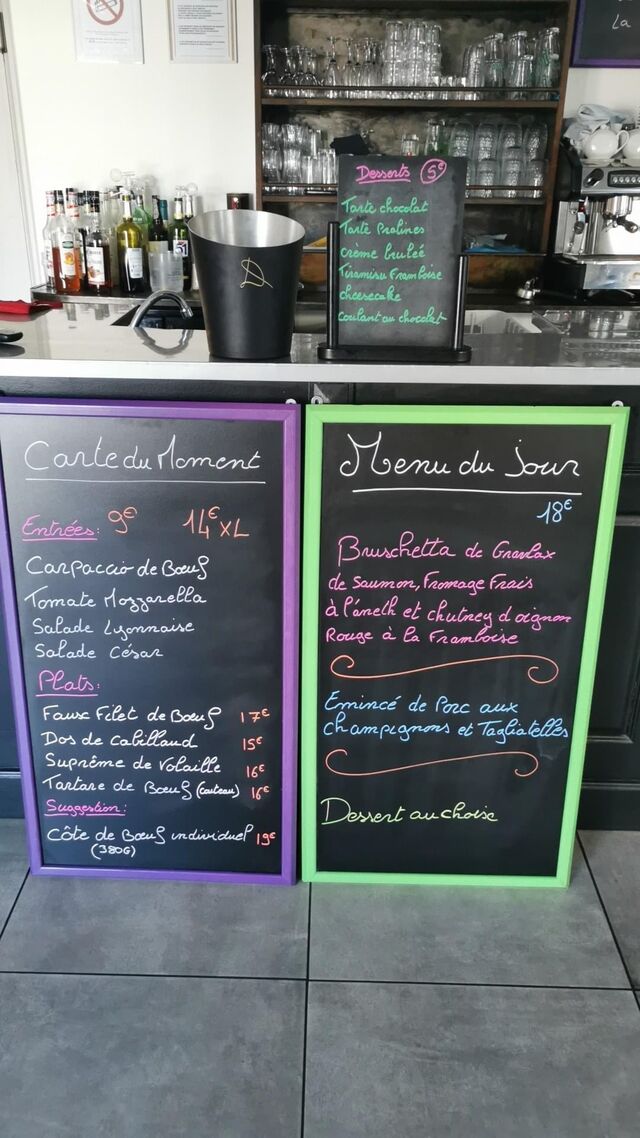 La
Desserts 5€
Tarte chocolat
Tarte Pralines
crème bruleé
Tiramisu Framboise
cheesecake
Coulant au chocolat
D
Carte du Moment
Entrées: 9€ 14€ XL
Carpaccio de Bœuf
Tomate Mozzarella
Salade Lyonnaise
Salade César
Plats:
Faux Filet de Bœuf 17€
Dos de cabillaud 15€
Suprême de Volaille 16€
Tartare de Bœuf (couteau) 16€
Suggestion:
Côte de Bœuf individuel 19€
(380G)
Menu du Jour
18€
Bruschetta de Gravlax
de Saumon, Fromage Frais
à l'aneth et chutney d'oignon
Rouge à la Framboise
Emincé de Porc aux
champignons et Tagliatelles
Dessert au choix